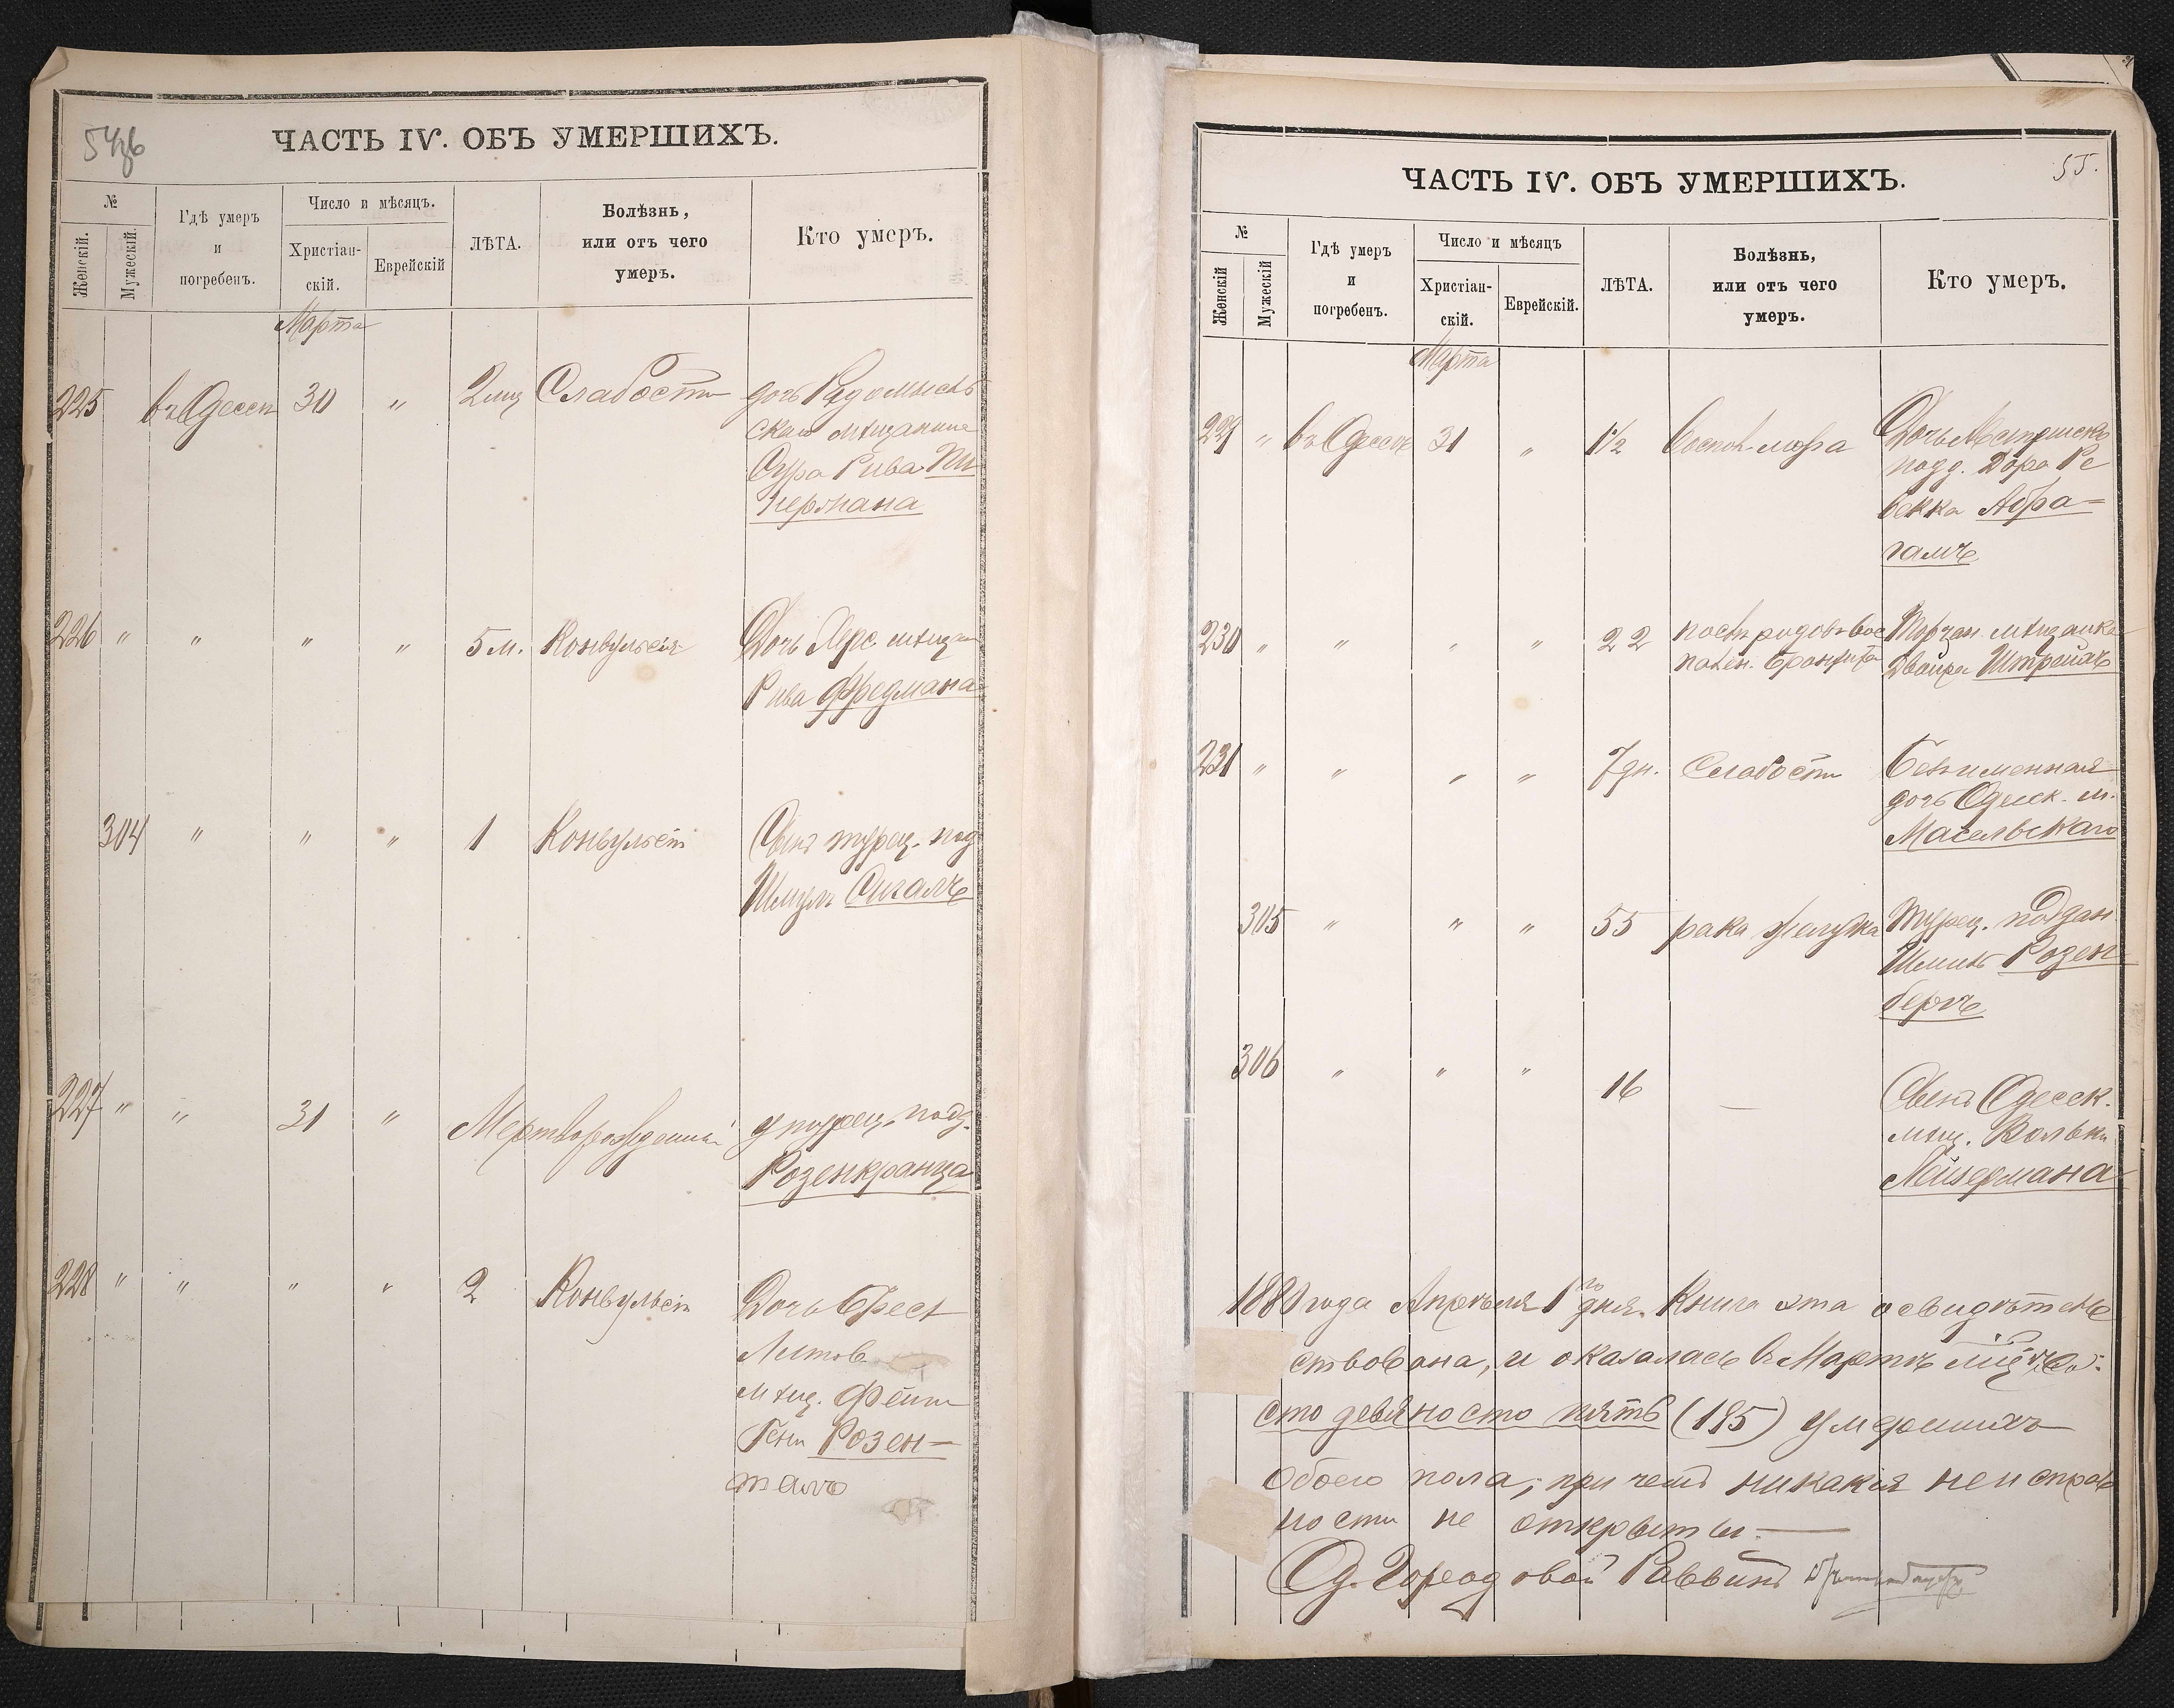 ЧАСТЬ IV. ОБЪ УМЕРШИХЪ.
№
Женскій.
Мужескій.
Гдѣ умеръ
и
погребенъ.
Число и мѣсяцъ.
Христіан-
скій.
Еврейскій
ЛѢТА.
Болѣзнь,
или отъ чего
умеръ.
Кто умеръ.
Марта
225 въ Одессѣ 30 " 2 мц Слабости дочь Радомысль
скаго мѣщанина
Сура Рива Пи
пермана
226 " " " " 5 м. Конвульсія Дочь Херс. мѣщан
Рива Фредмана
304 " " " 1 Конвульсіи Сынъ турец. под
Шмуль Сигалъ
227 " " 31 " Мертворожденный у турец. подд.
Розенкранца
228 " " " " 2 Конвульсіи Дочь Брест
Литов.
мѣщ. Фейги
Гени Розен-
таль
ЧАСТЬ IV. ОБЪ УМЕРШИХЪ.
55.
№
Женскій
Мужескій
Гдѣ умеръ
и
погребенъ.
Число и мѣсяцъ
Христіан-
скій.
Еврейскій.
ЛѢТА.
Болѣзнь,
или отъ чего
умеръ.
Кто умеръ.
Марта
229 " въ Одессѣ 31 " 1½ Дочь Австрійск.
подд. Дора Ре
векка Абра-
гамъ
230 " " " " 22 послѣ родов. вос
пален. бронхита мѣщанка
Двойра Штрейхъ
231 " " " " 7 дн. Слабости Безъименная
дочь Одесск. м.
Масельскаго
305 " " " 55 рака желудка Турец. поддан
Розен-
бергъ
306 " " " 16 — Сынъ Одесск.
мѣщ. Вольки
Лейзермана
1880 года Апрѣля 1го дня. Книга эта освидѣтель
ствована, и оказалась въ Мартѣ мцѣ
сто девяносто пять (195) умершихъ
обоего пола, при чемъ никакія неисправ
ности не открыты.—
Од. Городовой Раввинъ